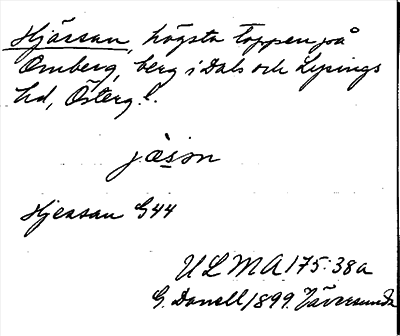 Hjässan, högsta toppen på
Omberg, berg i Dals och Lysings
hd, Österg.l.
jæsɔn
Hjessan G44
ULMA 175:38a
G. Danell 1899. Väversunda